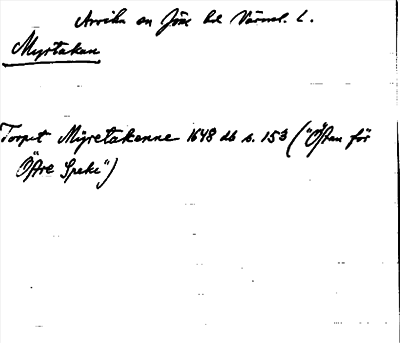 Arvika en Jöse hd Värml. l.
Myrtakan
Torpet Myretakenne 1648 db s. 153 ("Östan för
Östre Speke")